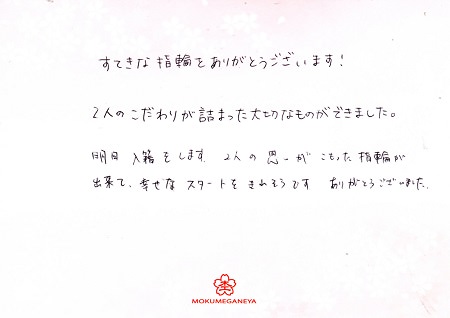 すてきな指輪をありがとうございます!
2人のこだわりが詰まった大切なものができました。
明日 入籍をします 2人の思いがこもった指輪が
出来て、幸せなスタートをきれそうです ありがとうございました。
MOKUMEGANEYA